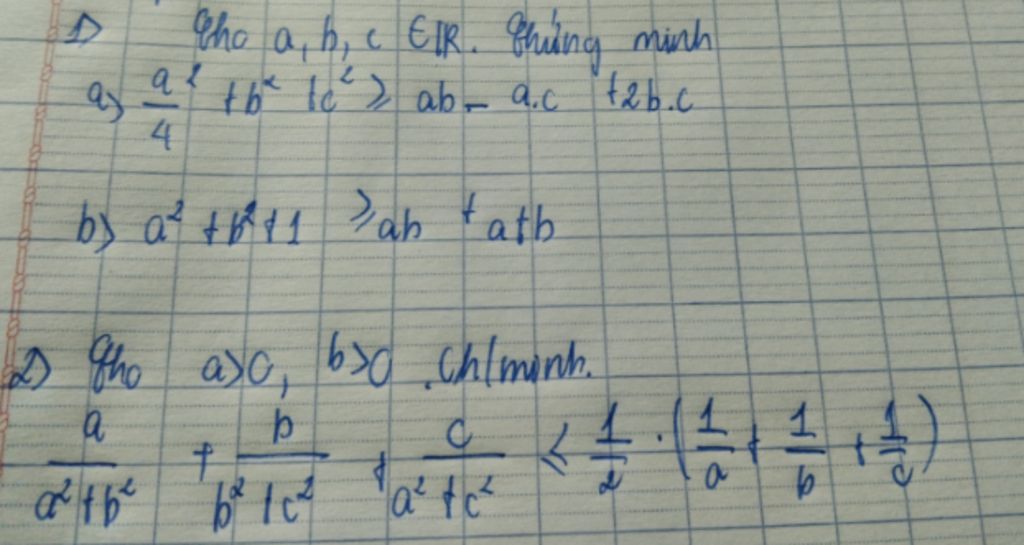 1) Cho a, b, c ∈ IR. Chứng minh
a) a²/4 + b² + c² ≥ ab - a.c + 2b.c
b) a² + b² + 1 ≥ ab + a + b
2) Cho a>0, b>0 . Ch/minh.
a/(a² + b²) + b/(b² + c²) + c/(a² + c²) ≤ 1/2 . (1/a + 1/b + 1/c)